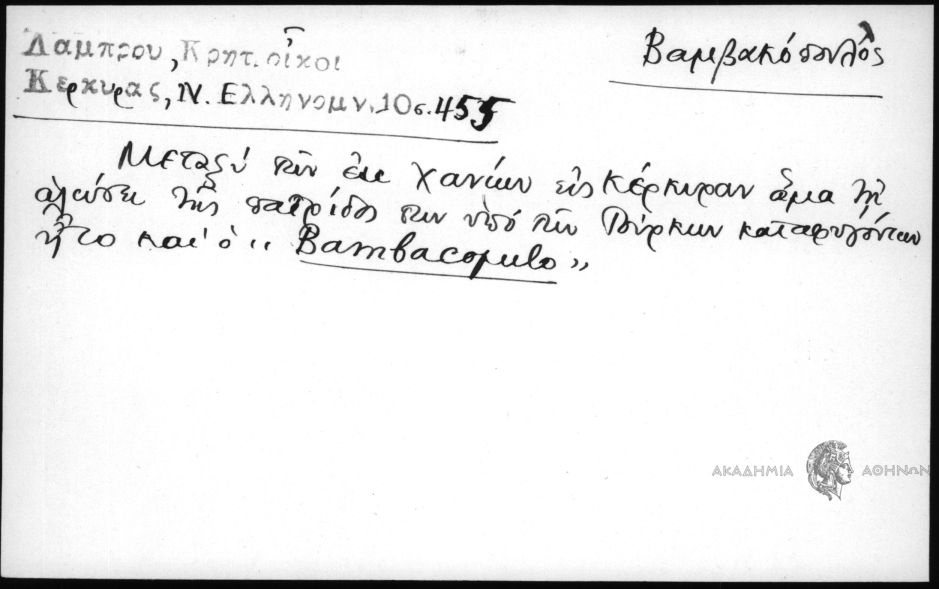 Λαμπρου, Κρητ. οἶκοι
Κερκυρας, Ν. Ελληνομν. 10 σ. 455
Βαμβακόπουλος
Μεταξὺ τῶν ἐκ Χανίων εἰς Κέρκυραν ἅμα τῇ
ἁλώσει τῆς πατρίδος των ὑπὸ τῶν Τούρκων καταφυγόντων
ἦτο καὶ ὁ "Bambacopulo"
ΑΚΑΔΗΜΙΑ ΑΘΗΝΩΝ